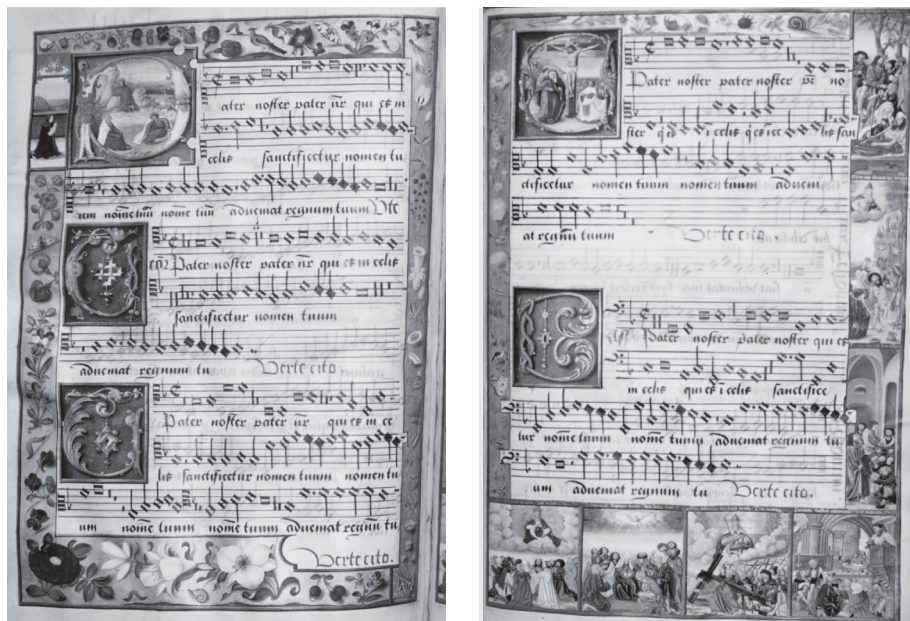 ater noster pater nr̄ qui es in
celis sanctificetur nomen tu
um nom̄e tuū nom̄e tuū adveniat regnum tuum Vte
Pater noster pater nr̄ qui es in celis
sanctificetur nomen tuum
adveniat regnum tu Verte cito
Pater noster pater nr̄ qui es in ce
lis sanctificetur nomen tuum nomen tu
um nom̄e tuum nom̄e tuum adveniat regnū tu
Verte cito.
Pater noster pater noster pr̄ no
ster q̄ es ī celis q̄ es ī ce lis san
ctificetur nomen tuum nomen tuum adveni
at regnū tuum Verte cito.
Pater noster pater noster qui es
in celis qui es ī celis sanctifice
tur nom̄e tuum nom̄e tuum adveniat regnum tu
um adveniat regnum tu Verte cito.